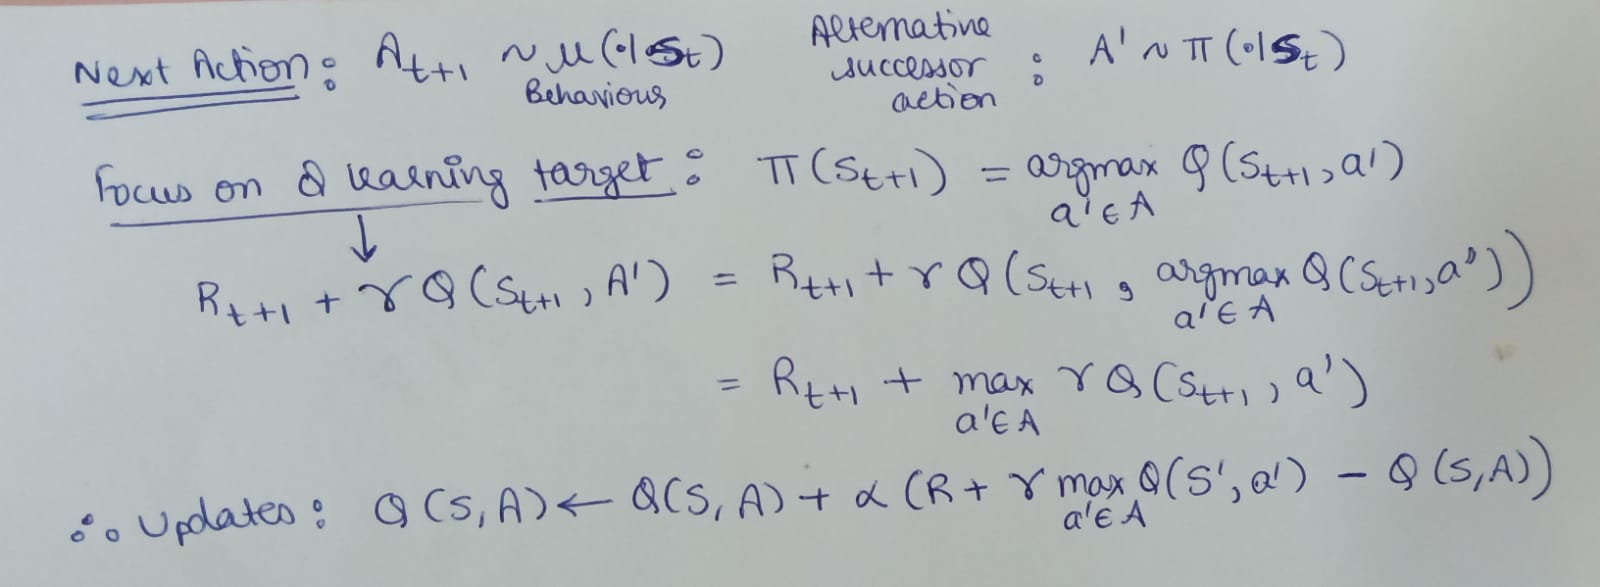 Next Action : A_{t+1} ~ μ(·|S_t) Behavious Alternative successor action : A' ~ π(·|S_t)
Focus on Q learning target : π(S_{t+1}) = argmax_{a'∈A} Q(S_{t+1}, a')
↓
R_{t+1} + γQ(S_{t+1}, A') = R_{t+1} + γQ(S_{t+1}, argmax_{a'∈A} Q(S_{t+1}, a'))
= R_{t+1} + max_{a'∈A} γQ(S_{t+1}, a')
∴ Updates : Q(S,A) ← Q(S,A) + α(R + γ max_{a'∈A} Q(S', a') - Q(S,A))